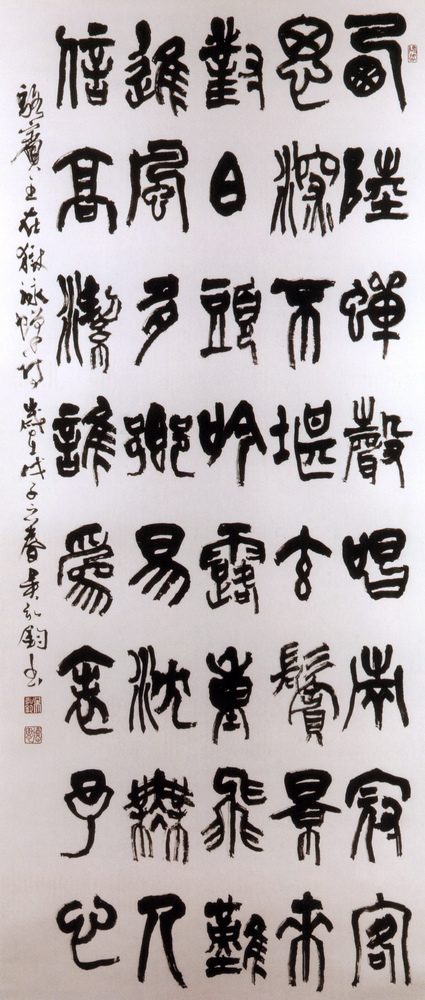 西陸蟬聲唱南冠客
思深不堪玄鬢景來
對白頭吟露重飛難
進風多響易沈無人
信高潔誰為表予心
駱賓王在獄詠蟬詩 歲戊子之春吳弘鈞書